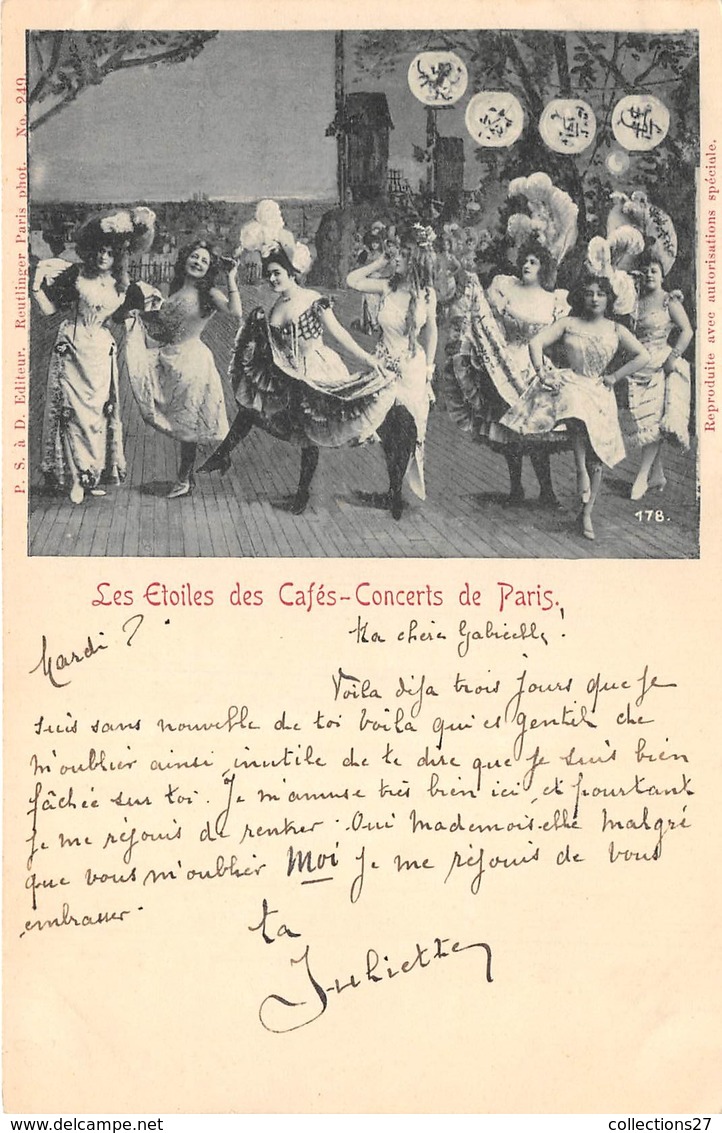 P. S. à D. Editeur. Reutlinger Paris phot. No. 249.
Reproduite avec autorisations spéciale.
178.
Les Etoiles des Cafés-Concerts de Paris.
Mardi 7.
Ma chère Gabrielle!
Voila déja trois jours que je
suis sans nouvelle de toi Voila qui es gentil de
m'oublier ainsi, inutile de te dire que je suis bien
fâchée sur toi. Je m'amuse très bien ici, et pourtant
je me réjouis de rentrer. Oui Mademoiselle malgré
que vous m'oublier Moi je me réjouis de vous
embrasser.
ta
Juliette
collections27